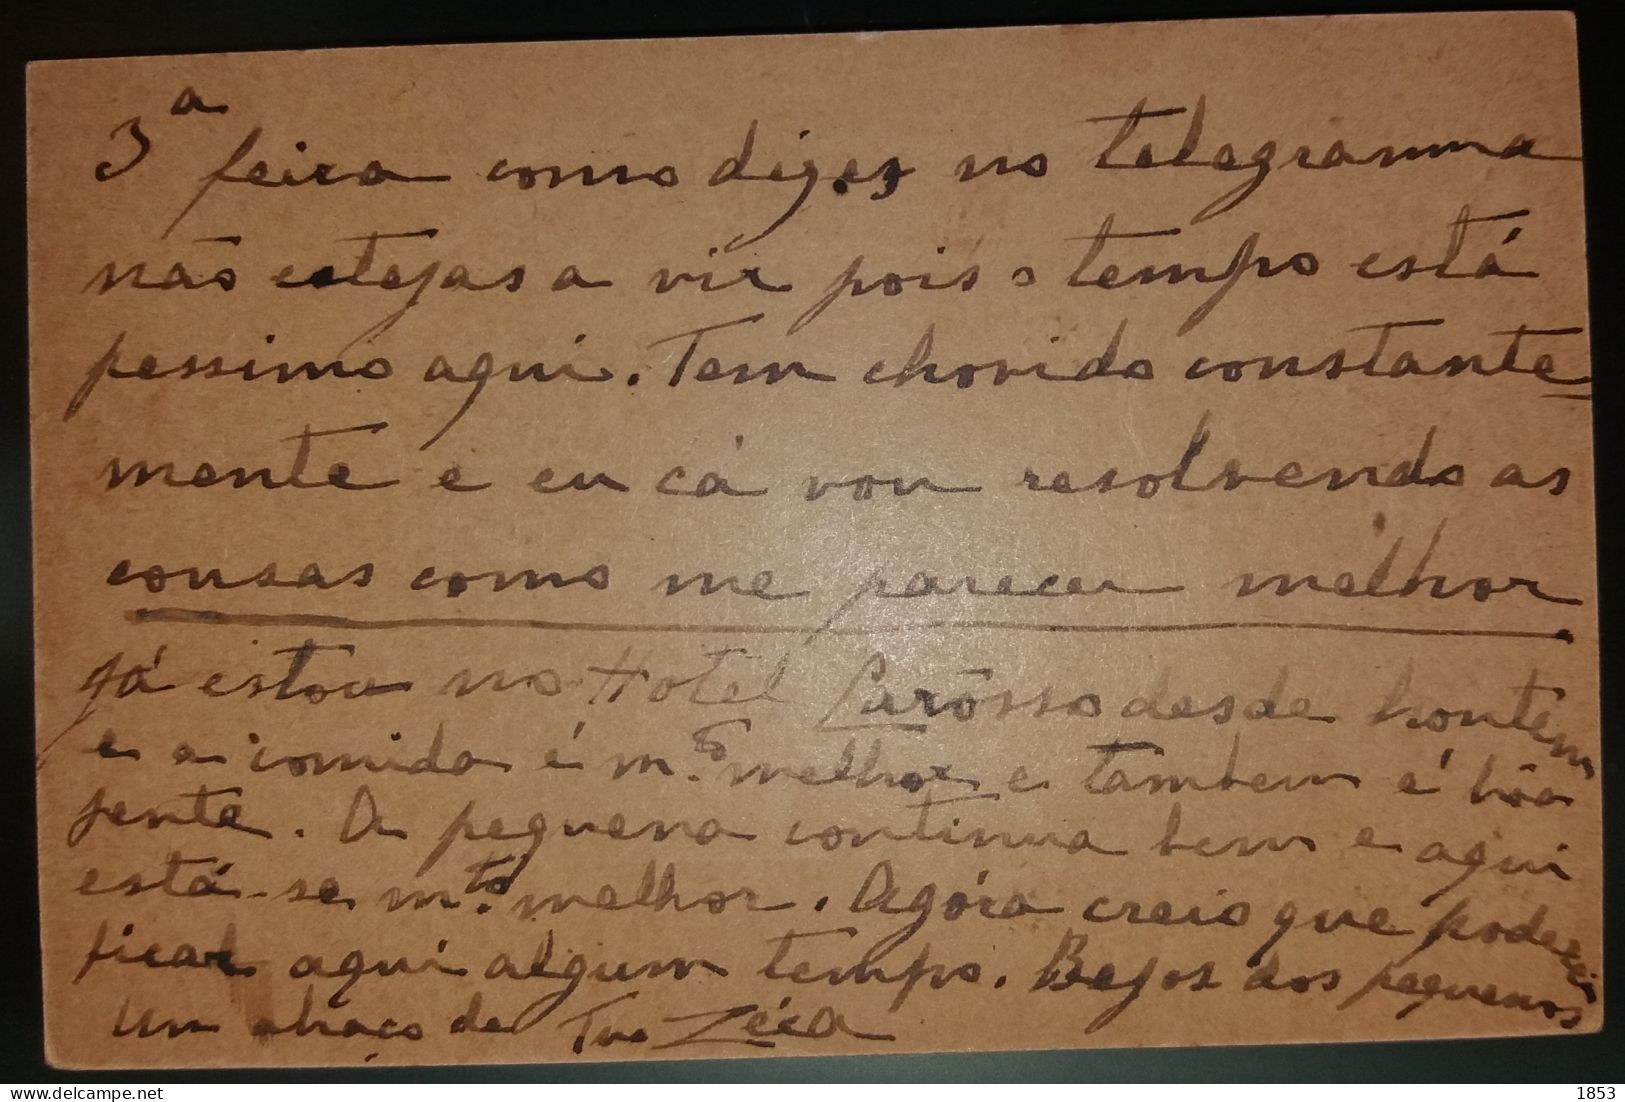 3ª feira como dizes no telegramma
não estejas a vir pois o tempo está
pessimo aqui. Tem chovido constante
mente e eu cá vou resolvendo as
cousas como me parecer melhor
Já estou no Hotel desde hontem
e a comida é m.to melhor e tambem é bôa
jente. A pequena continua bem e aqui
está-se m.to melhor. Agóra creio que poderei
ficar aqui algum tempo. Bejos dos pequenos
Um abraço da Tua Zéca
1853